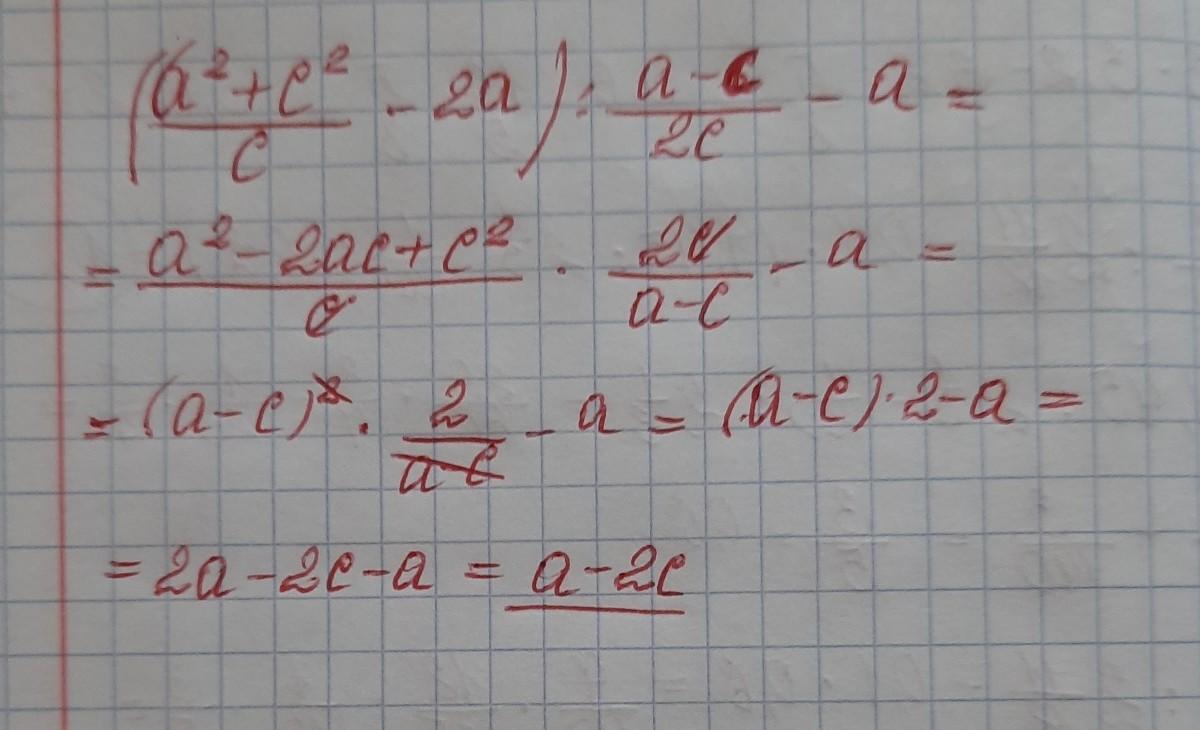 (\frac{a^2+c^2}{c} - 2a) : \frac{a-c}{2c} - a =
= \frac{a^2-2ac+c^2}{c} · \frac{2c}{a-c} - a =
= (a-c)^2 · \frac{2}{a-c} - a = (a-c)·2-a =
= 2a-2c-a = a-2c